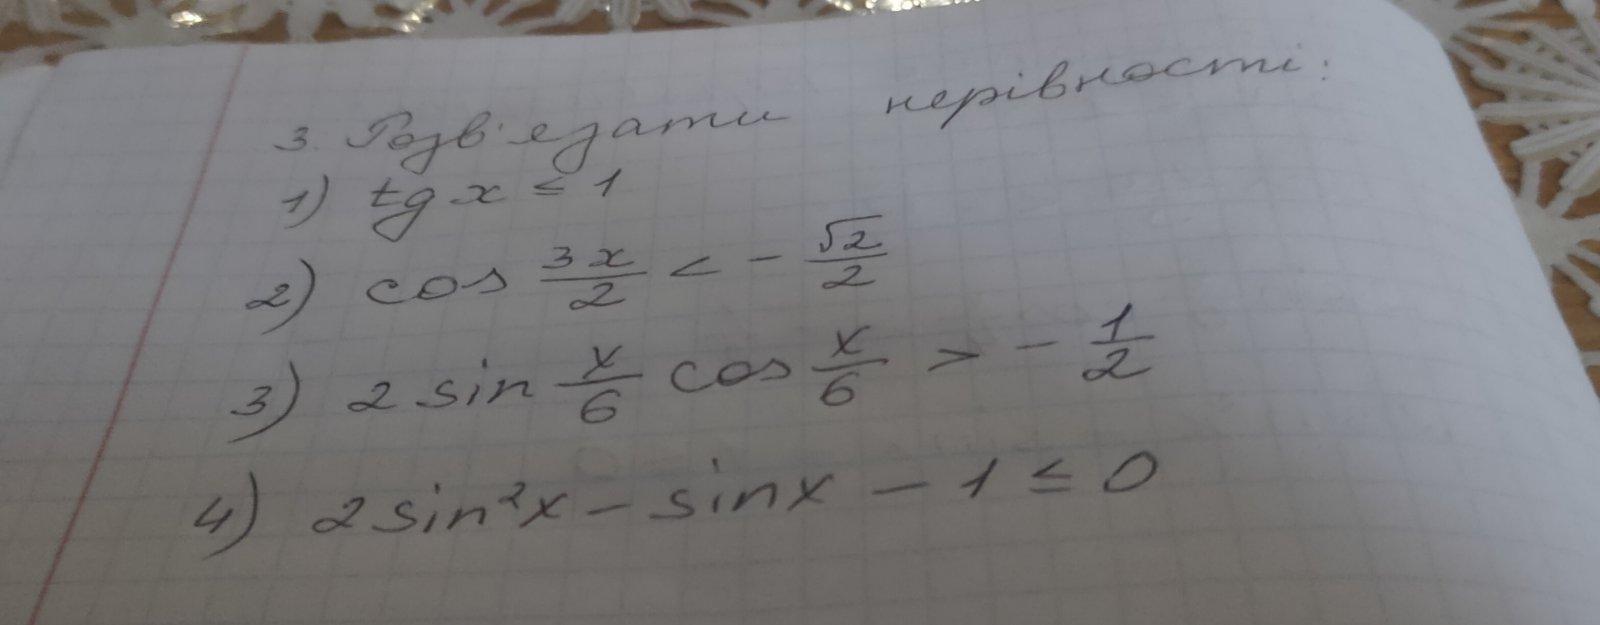 3. Розв'язати нерівності:
1) tg x ≤ 1
2) cos 3x/2 < - √2/2
3) 2 sin x/6 cos x/6 > - 1/2
4) 2 sin²x - sin x - 1 ≤ 0